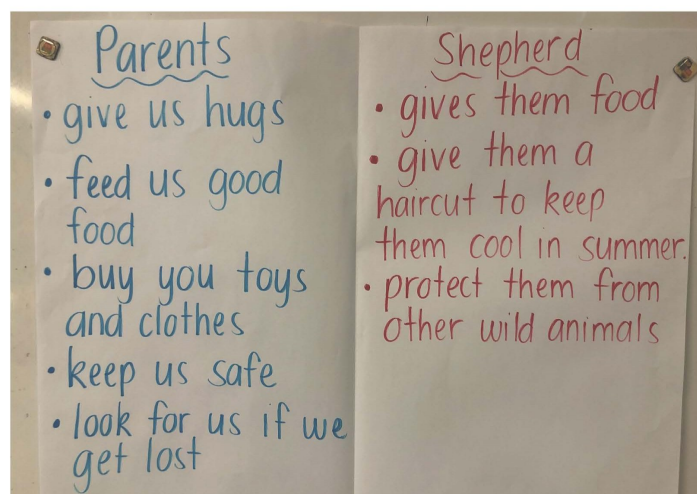 Parents
• give us hugs
• feed us good
food
• buy you toys
and clothes
• keep us safe
• look for us if we
get lost
Shepherd
• gives them food
• give them a
haircut to keep
them cool in summer.
• protect them from
other wild animals